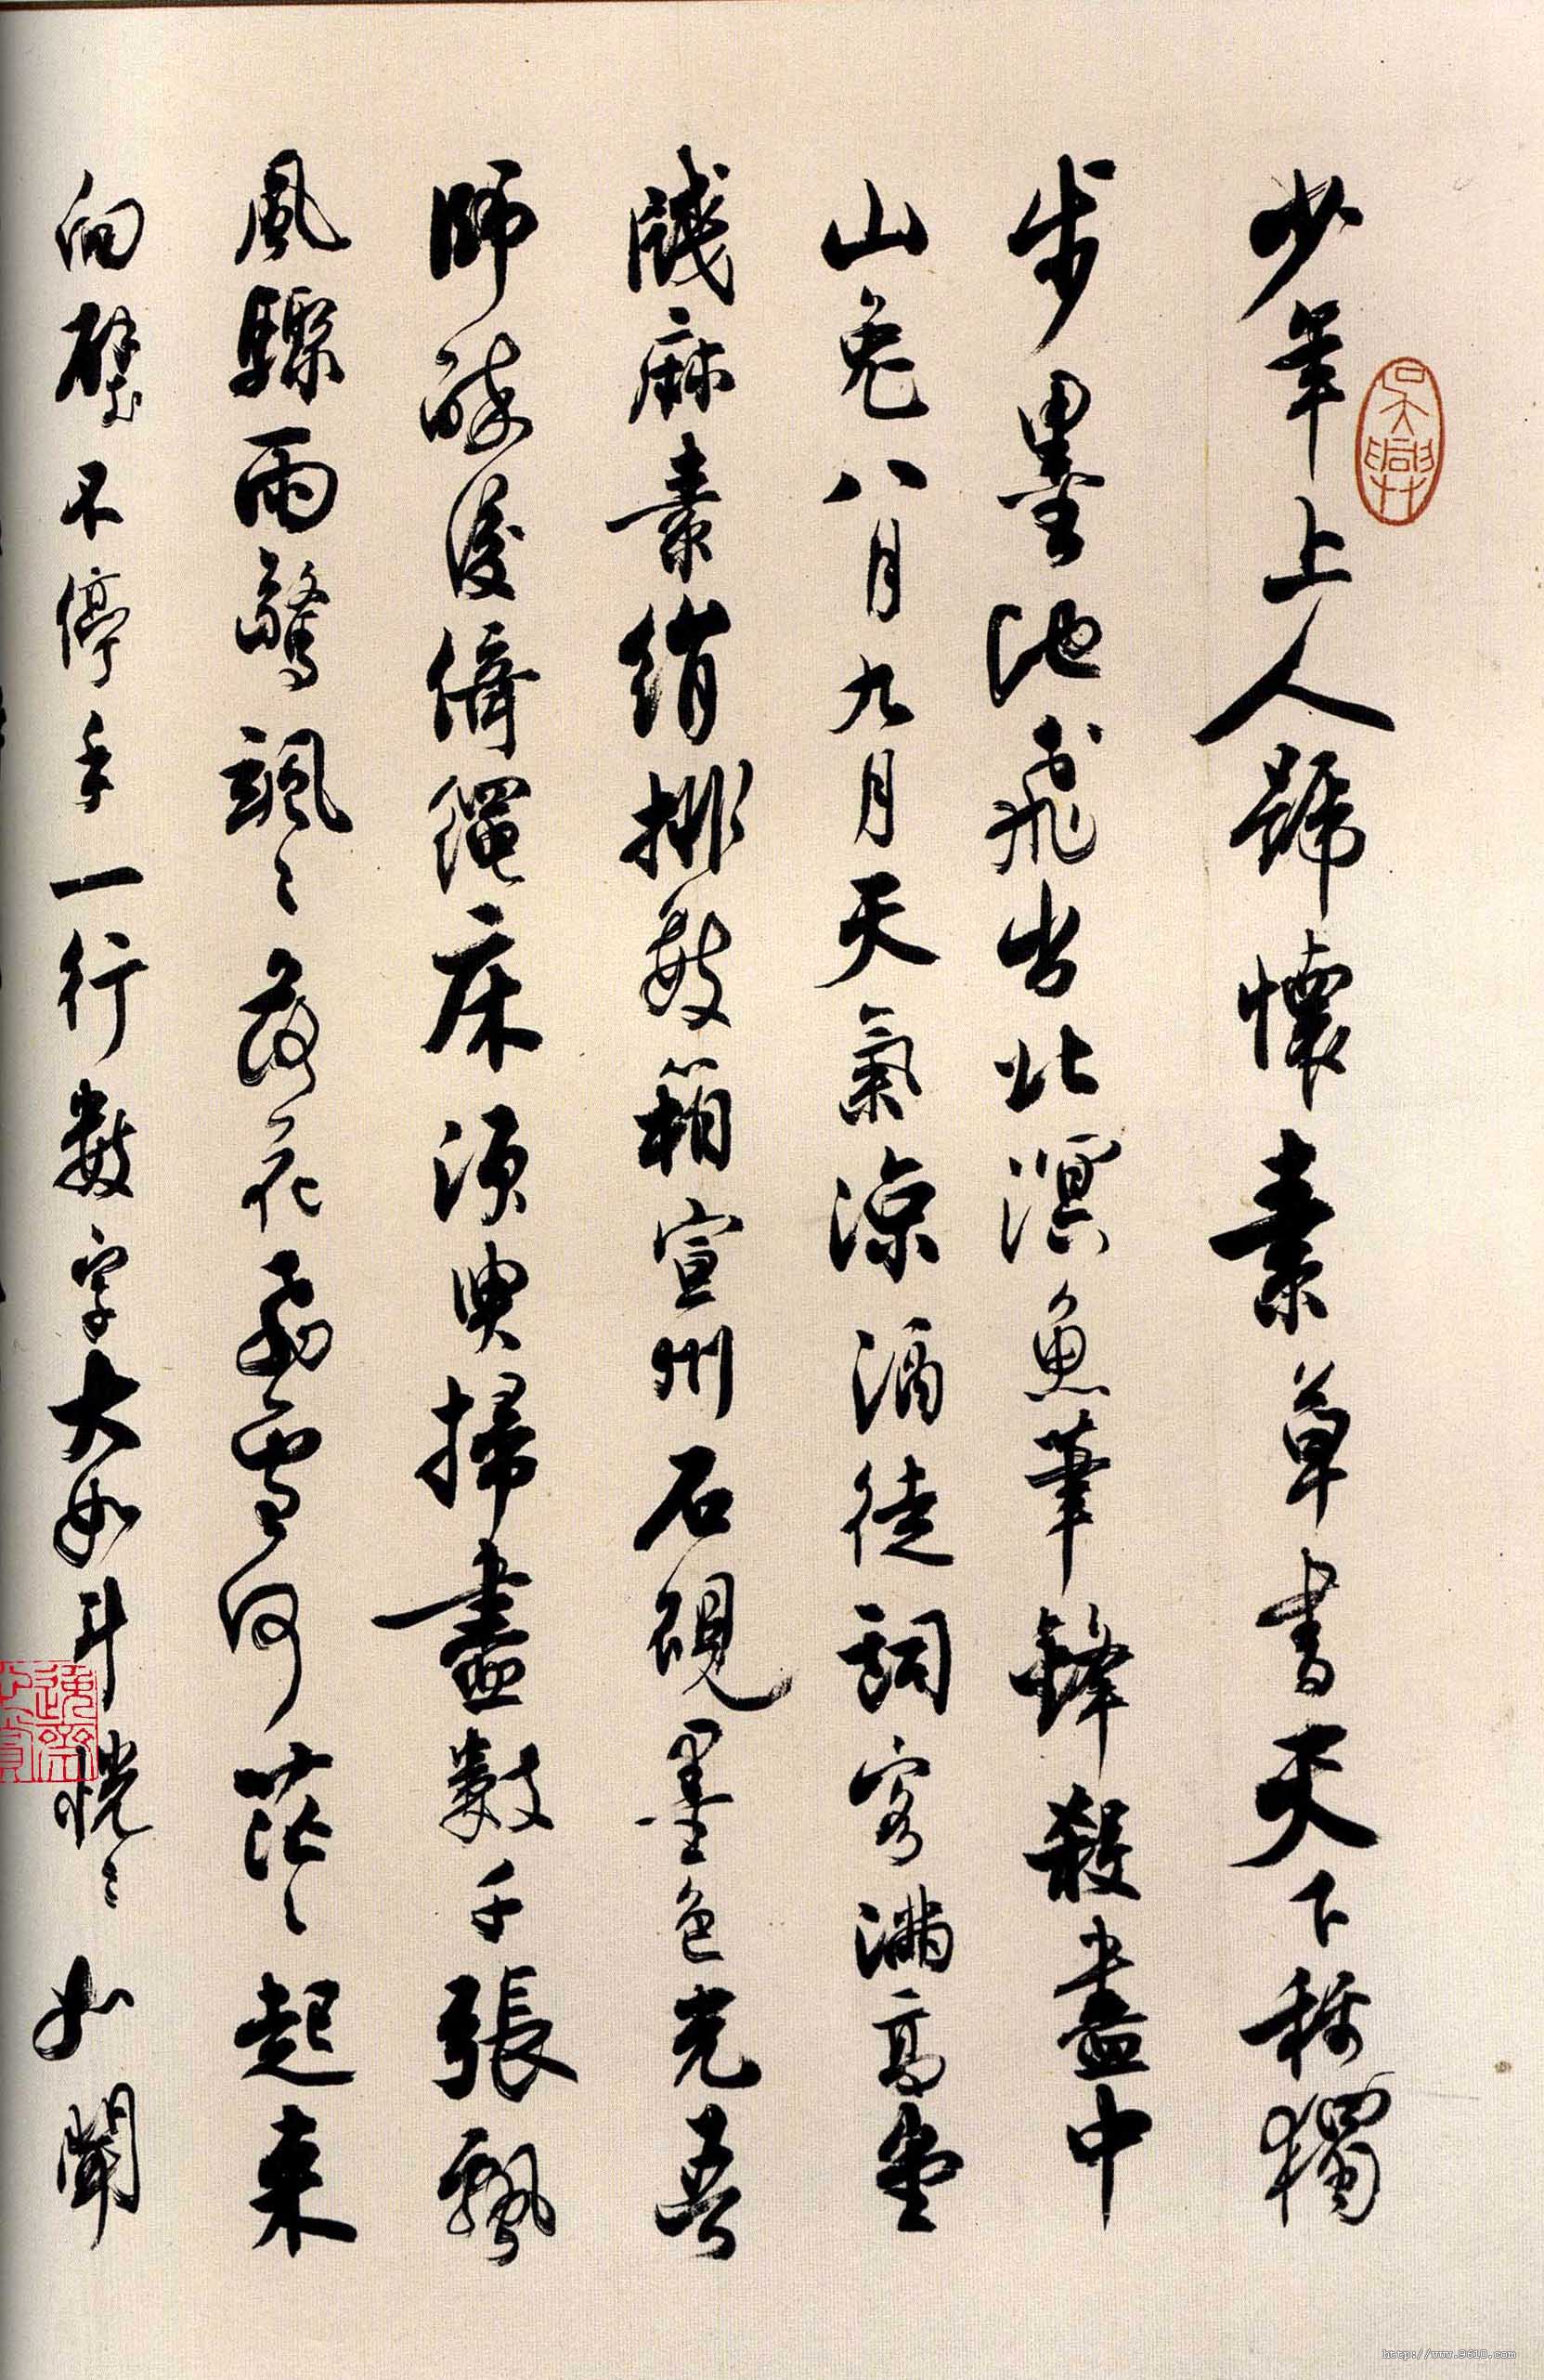 少年上人號懷素草書天下稱獨
步墨池飛出北溟魚筆鋒殺盡中
山兔八月九月天氣涼酒徒詞客滿高堂
牋麻素絹排數箱宣州石硯墨色光吾
師醉後倚繩床須臾掃盡數千張飄
風驟雨驚颯〻落花飛雪何茫〻起来
向壁不停手一行數字大如斗恍〻如聞
吳興
http://www.9610.com